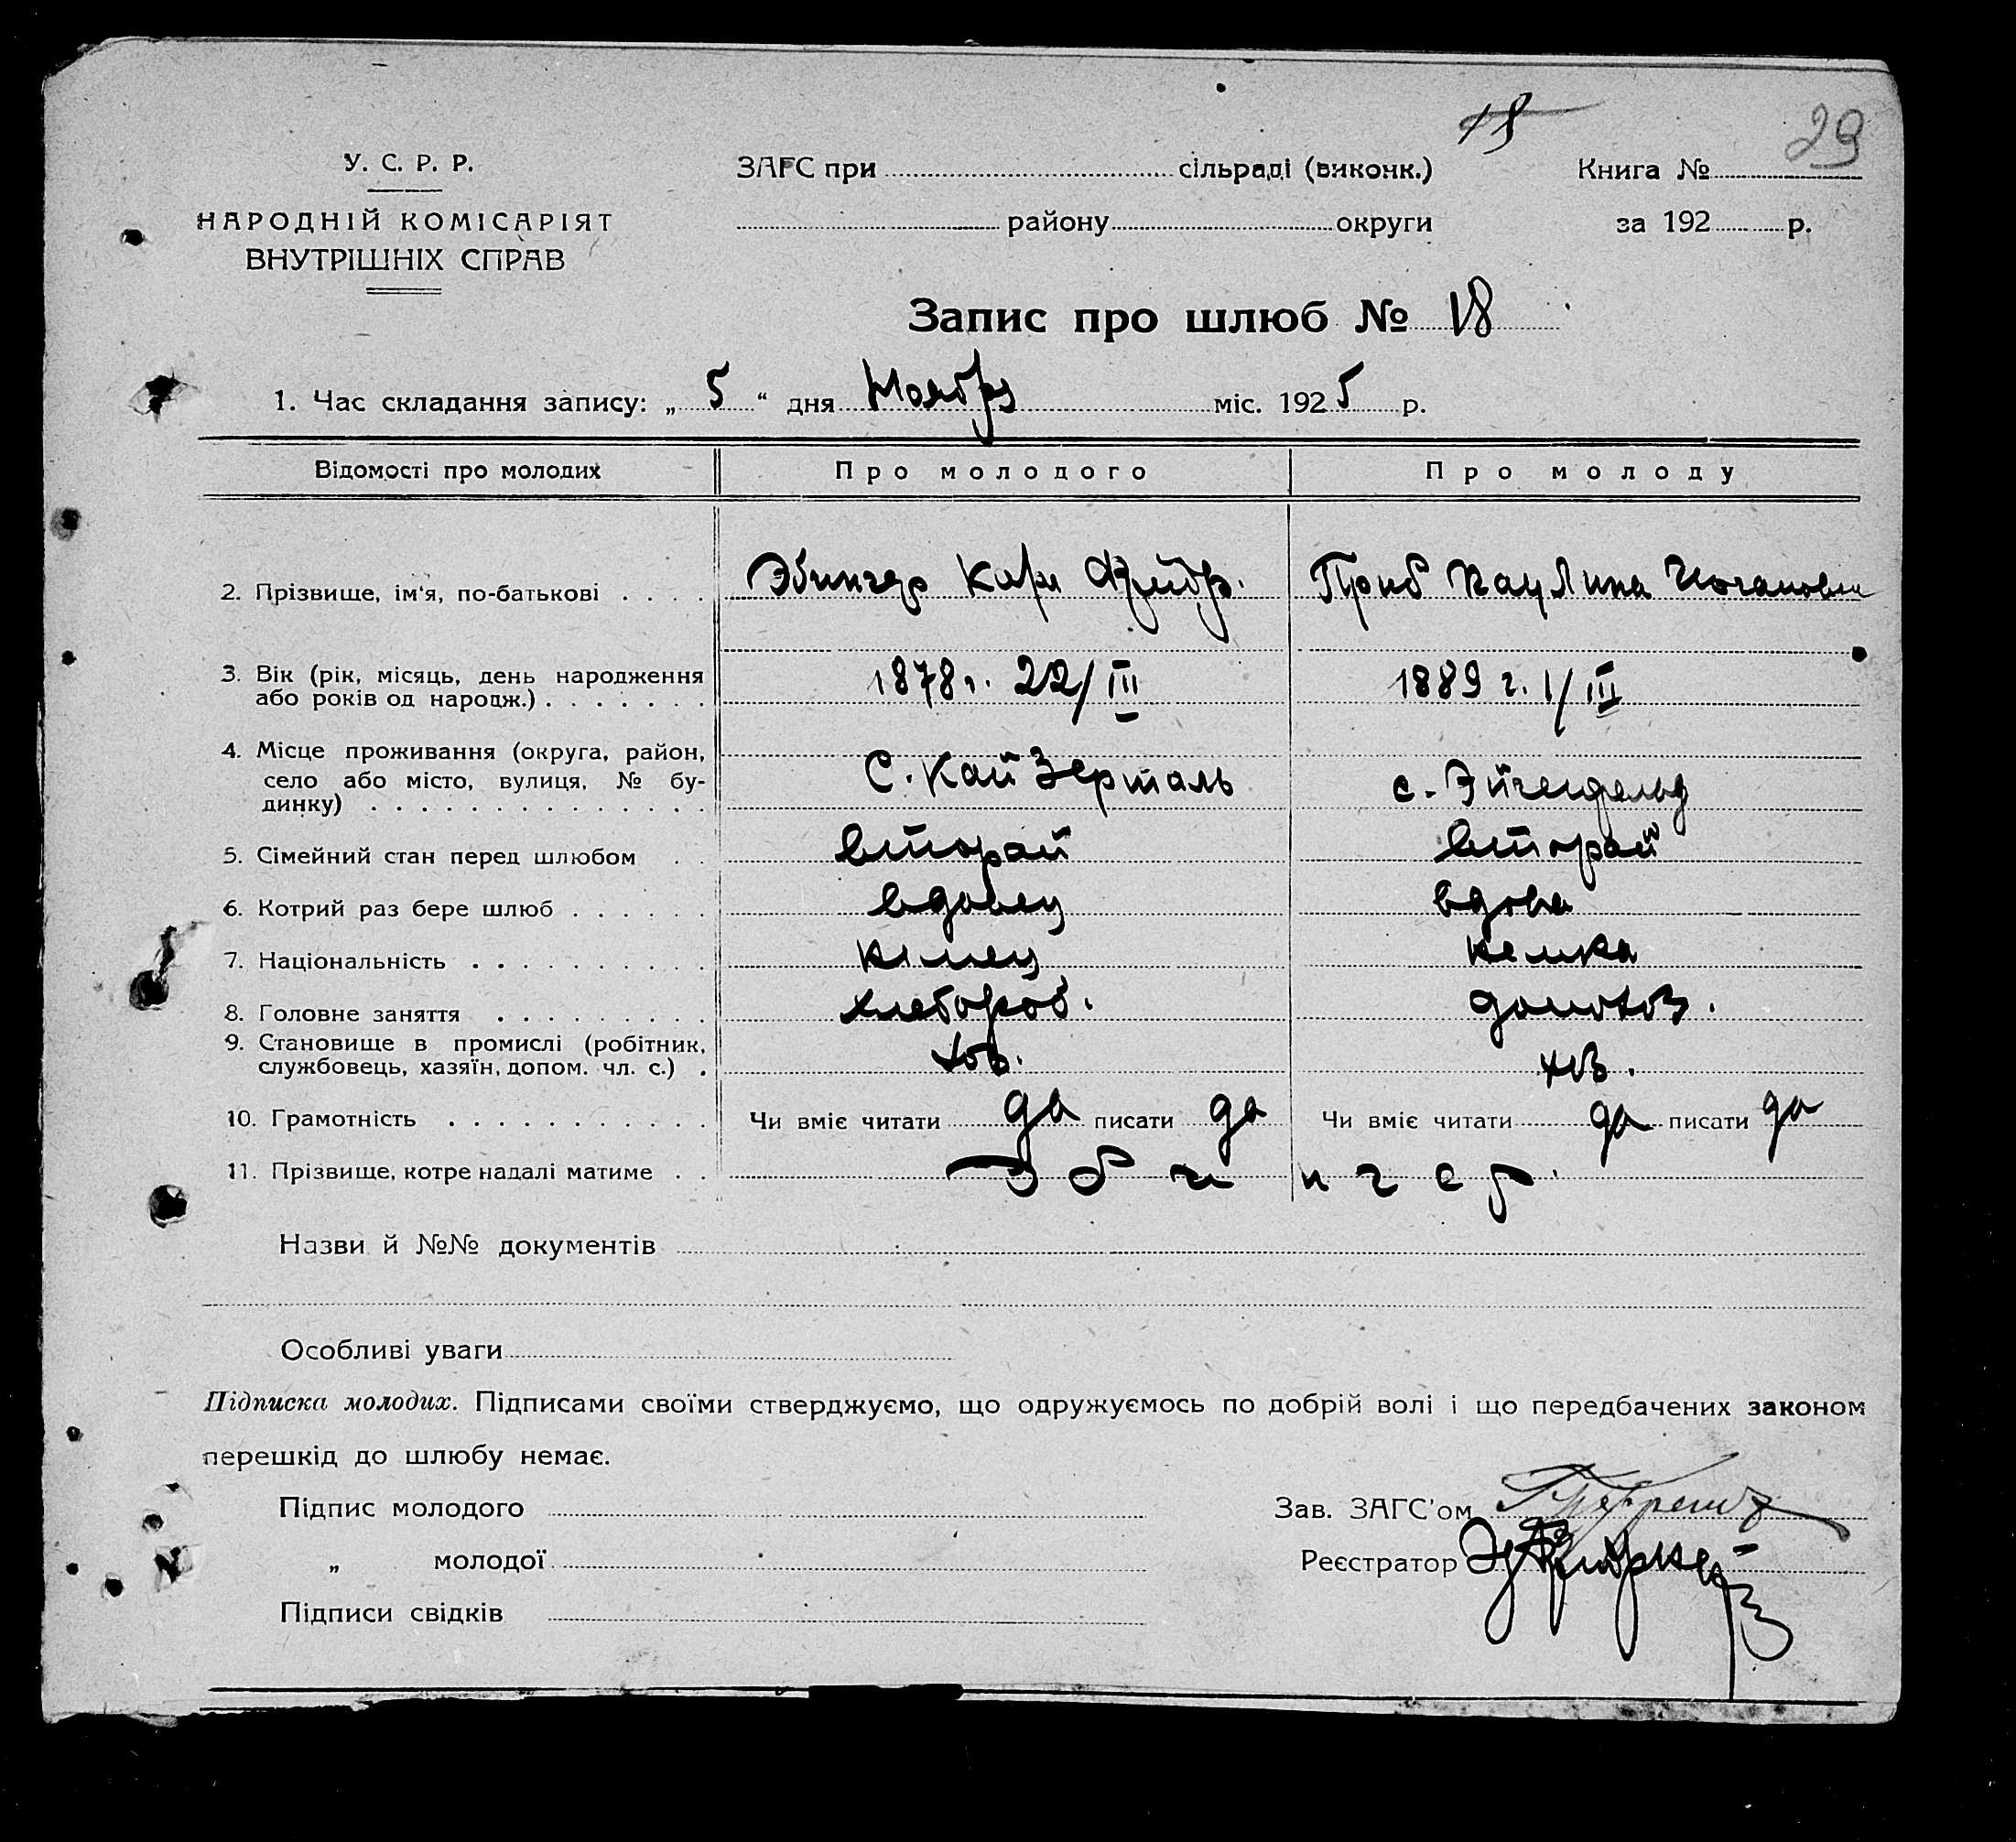 18
29
У. С. Р. Р.
НАРОДНІЙ КОМІСАРІЯТ
ВНУТРІШНІХ СПРАВ
ЗАГС при сільраді (виконк.)
району округи
Книга №
за 192 р.
Запис про шлюб № 18
1. Час складання запису: „ 5 “ дня Ноября міс. 1925 р.
Відомості про молодих Про молодого Про молоду
2. Прізвище, ім'я, по-батькові . . . . Эбингер Карл Фридр. Гриб Паулина Иогановна
3. Вік (рік, місяць, день народження
або років од народж.) . . . . . . . 1878 г. 22/III 1889 г. 1/III
4. Місце проживання (округа, район,
село або місто, вулиця, № бу-
динку) . . . . . . . . . . . . . . С. Кайзерталь с. Эйгенфельд
5. Сімейний стан перед шлюбом . . вторай вторай
6. Котрий раз бере шлюб . . . . . . вдовец вдова
7. Національність . . . . . . . . . . немец немка
8. Головне заняття . . . . . . . . . хлебороб. домохоз.
9. Становище в промислі (робітник,
службовець, хазяїн, допом. чл. с.) . хоз. хоз.
10. Грамотність . . . . . . . . . . . Чи вміє читати да писати да Чи вміє читати да писати да
11. Прізвище, котре надалі матиме . . Эбингер.
Назви й №№ документів
Особливі уваги
Підписка молодих. Підписами своїми стверджуємо, що одружуємось по добрій волі і що передбачених законом
перешкід до шлюбу немає.
Підпис молодого
„ молодої
Підписи свідків
Зав. ЗАГС'ом
Реєстратор